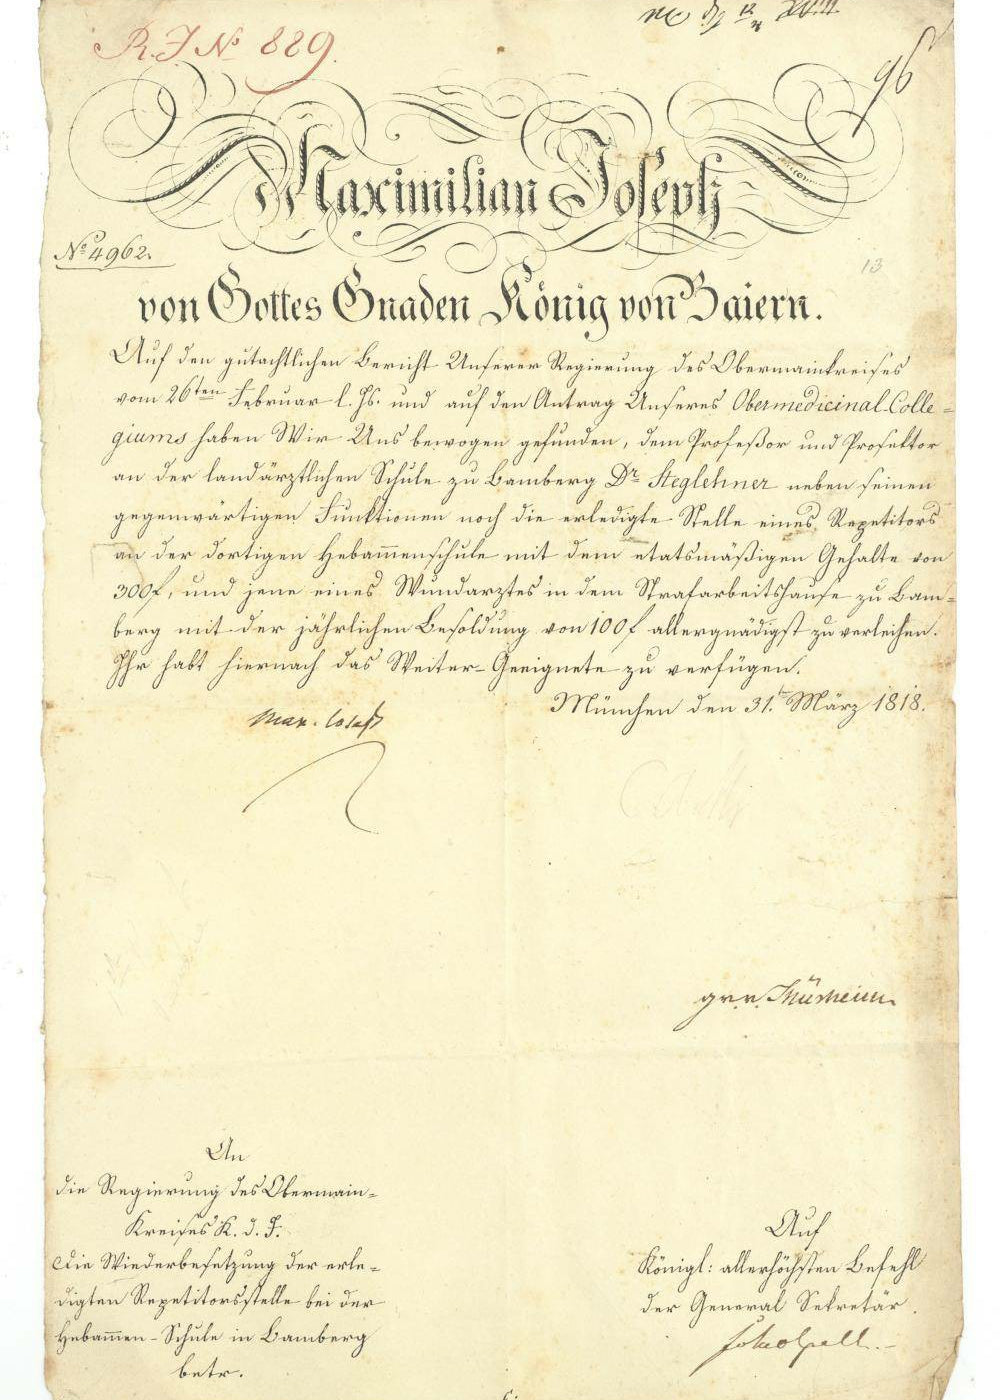 R. J. No 889.
96
Maximilian Joseph
No 4962.
13
von Gottes Gnaden König von Baiern.
Auf den gutachtlichen Bericht Unserer Regierung des Obermainkreises
vom 26ten Februar l. Js. und auf den Antrag Unseres Obermedicinal-Colle-
giums haben Wir Uns bewogen gefunden, dem Profeßor und Prosektor
an der landärztlichen Schule zu Bamberg Dr. Steglehner neben seinen
gegenwärtigen Funktionen noch die erledigte Stelle eines Repetitors
an der dortigen Hebam̅enschule mit dem etatsmäßigen Gehalte von
300f, und jene eines Wundarztes in dem Strafarbeitshause zu Bam-
berg mit der jährlichen Besoldung von 100f allergnädigst zu verleihen.
Ihr habt hiernach das Weiter-Geeignete zu verfügen.
München den 31.t März 1818.
Max. Joseph
gr. v. Thürheim
An
die Regierung des Obermain-
Kreises K. d. J.
Die Wiederbesetzung der erle-
digten Repetitorsstelle bei der
Hebam̅en-Schule in Bamberg
betr.
Auf
Königl: allerhöchsten Befehl
der General Sekretär.